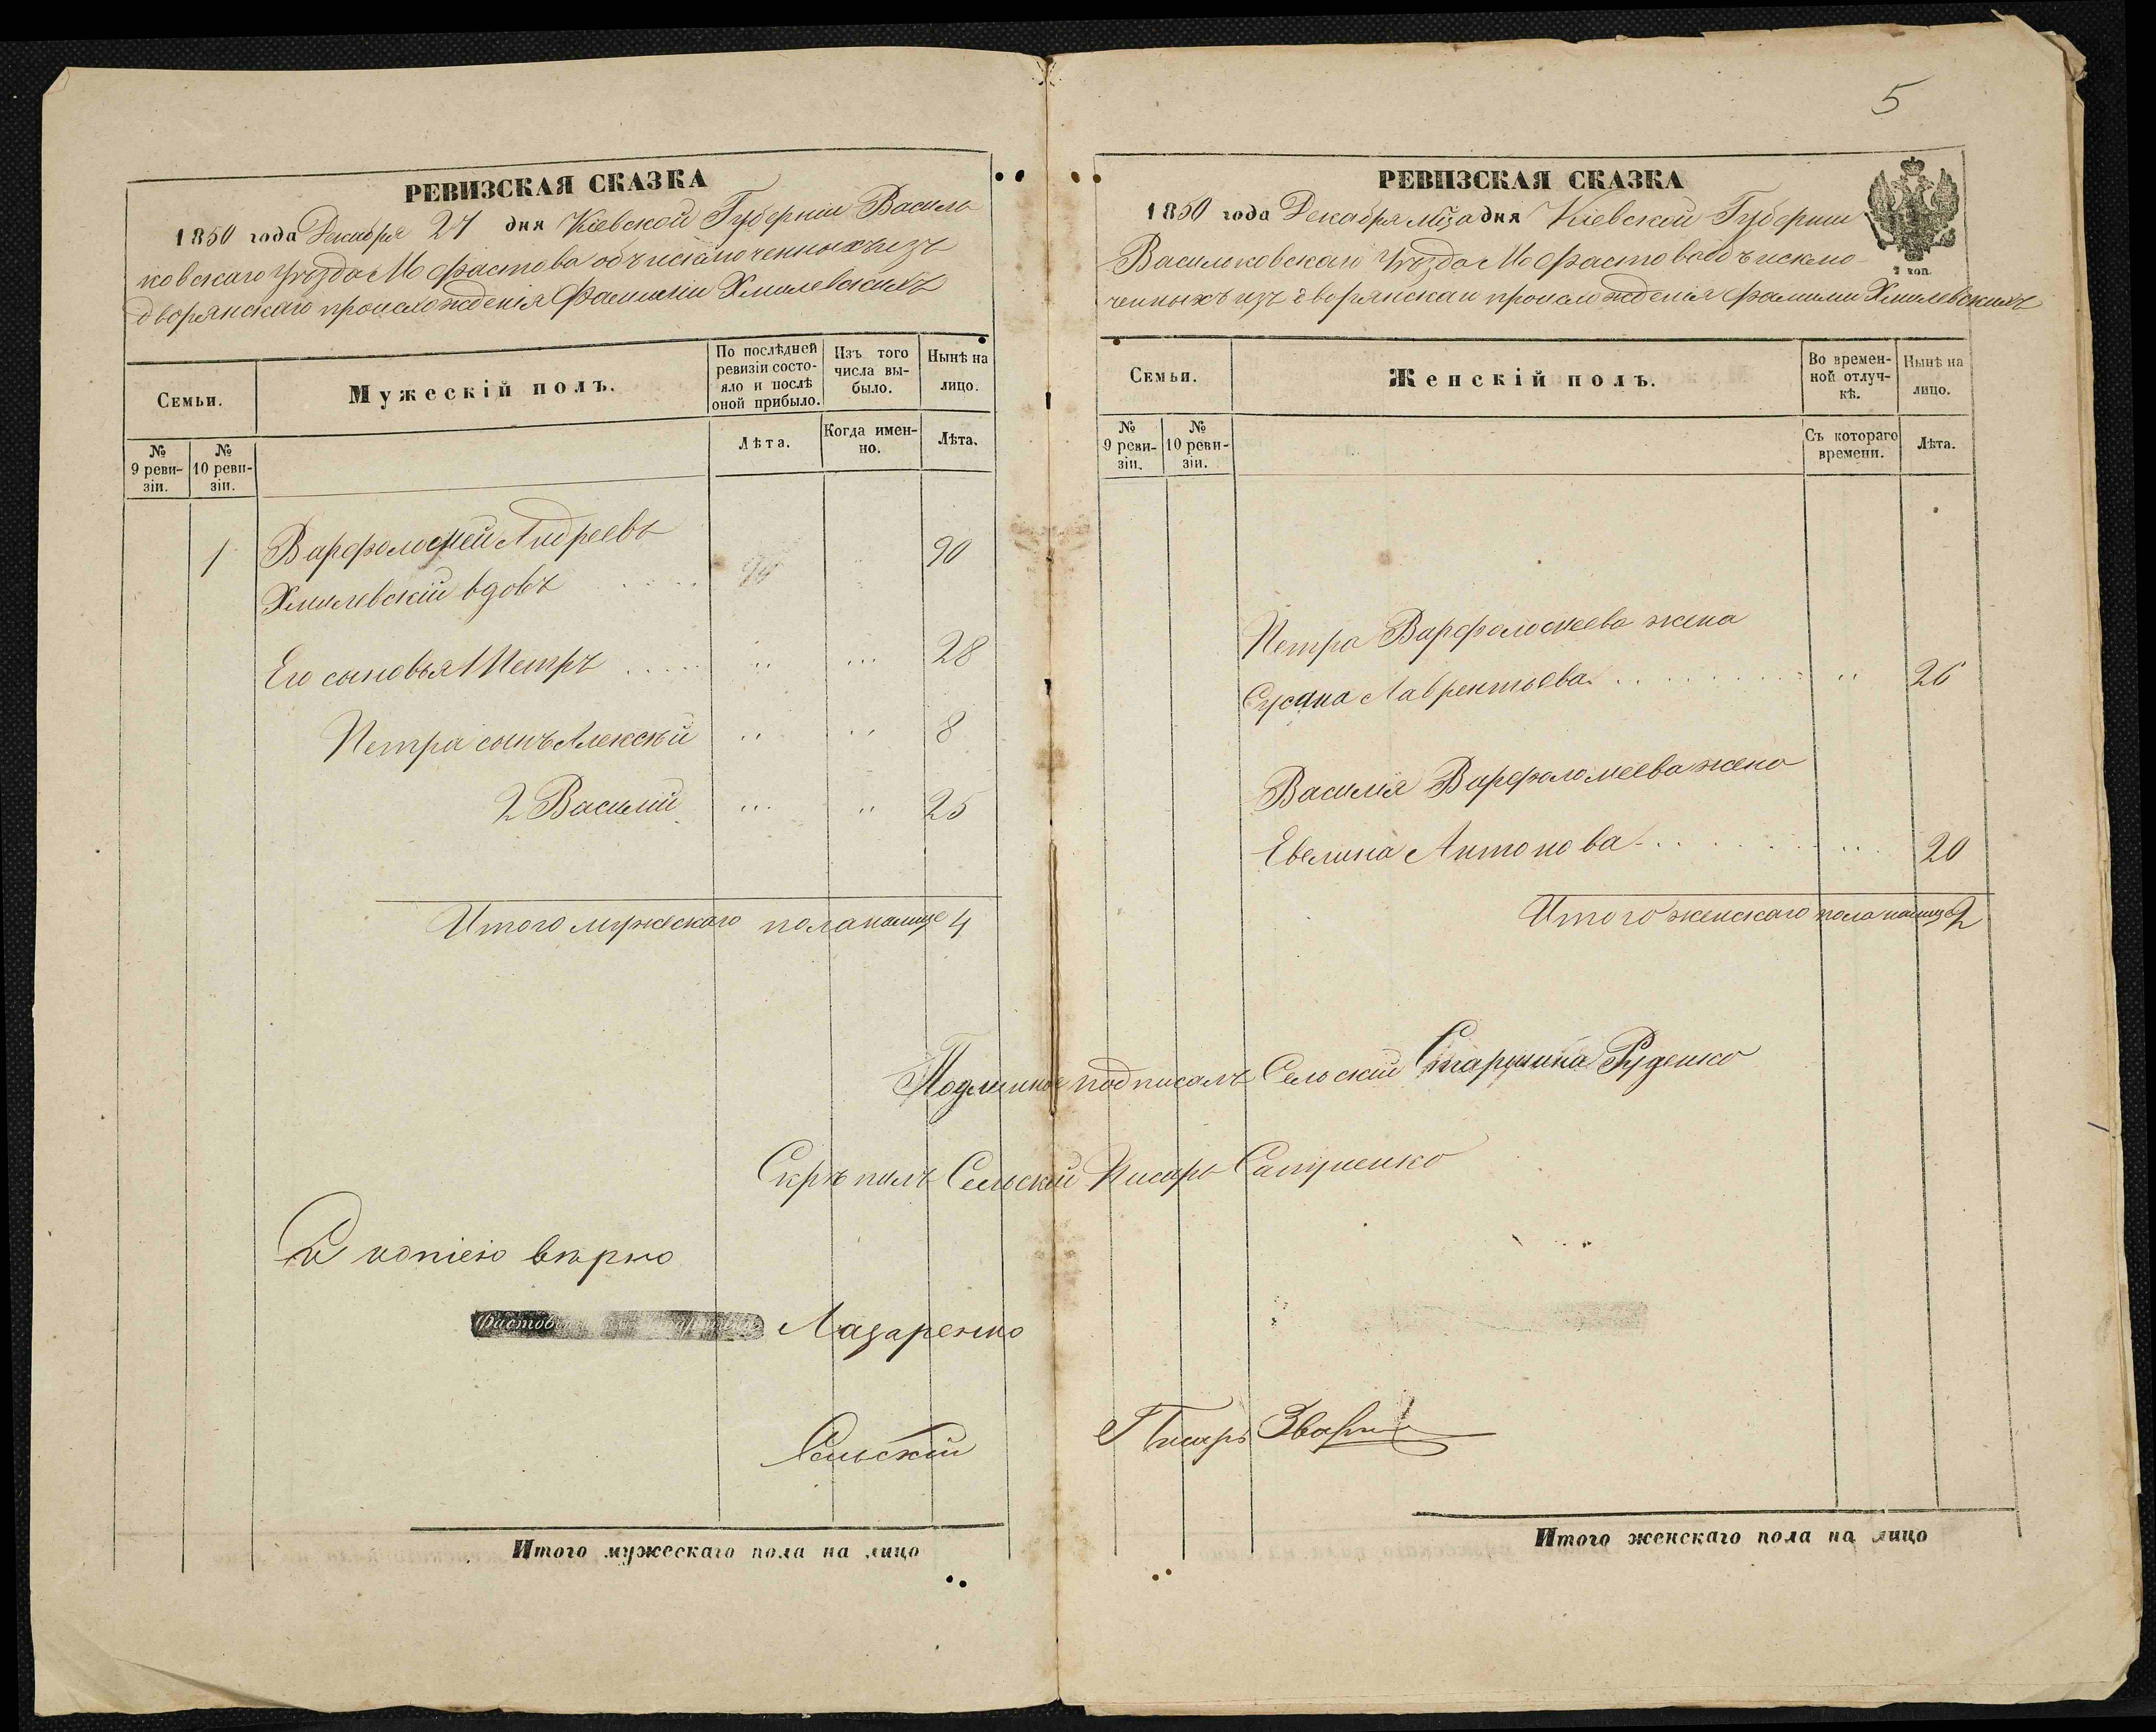 РЕВИЗСКАЯ СКАЗКА
1850 года Декабря 27 дня Кіевской Губерніи Василь
ковскаго Уѣзда М. Фастова объ исключенныхъ изъ
дворянскаго происхожденія Фамиліи Хмилевскихъ
Семьи.
Мужескій полъ.
По послѣдней ревизіи состояло и послѣ оной прибыло.
Изъ того числа выбыло.
Нынѣ на лицо.
№ 9 ревизіи.
№ 10 ревизіи.
Лѣта.
Когда именно.
Лѣта.
1 Варфоломей Андреевъ 90
Хмилевскій вдовъ
Его сыновья 1 Петръ 28
Петра сынъ Алексѣй 8
2 Василій 25
Итого мужескаго пола налице 4
5
РЕВИЗСКАЯ СКАЗКА
2 коп.
1850 года Декабря мца дня Кіевской Губерніи
Васильковскаго Уѣзда М. Фастова объ исклю-
ченныхъ изъ дворянскаи происложденія Фамиліи Хмилевскихъ
Семьи.
Женскій полъ.
Во временной отлучкѣ.
Нынѣ на лицо.
№ 9 ревизіи.
№ 10 ревизіи.
Съ котораго времени.
Лѣта.
Петра Варфоломеева жена
Сусана Лаврентьева 26
Василія Варфоломеева жена
Евелина Антонова 20
Итого женскаго пола налице 2
Подлинное подписалъ Сельскій Старшина Руденко
Скрѣпилъ Сельскій Писарь
Съ копіею вѣрно
Лазаренко
Сельскій Писарь
Итого мужескаго пола на лицо
Итого женскаго пола на лицо